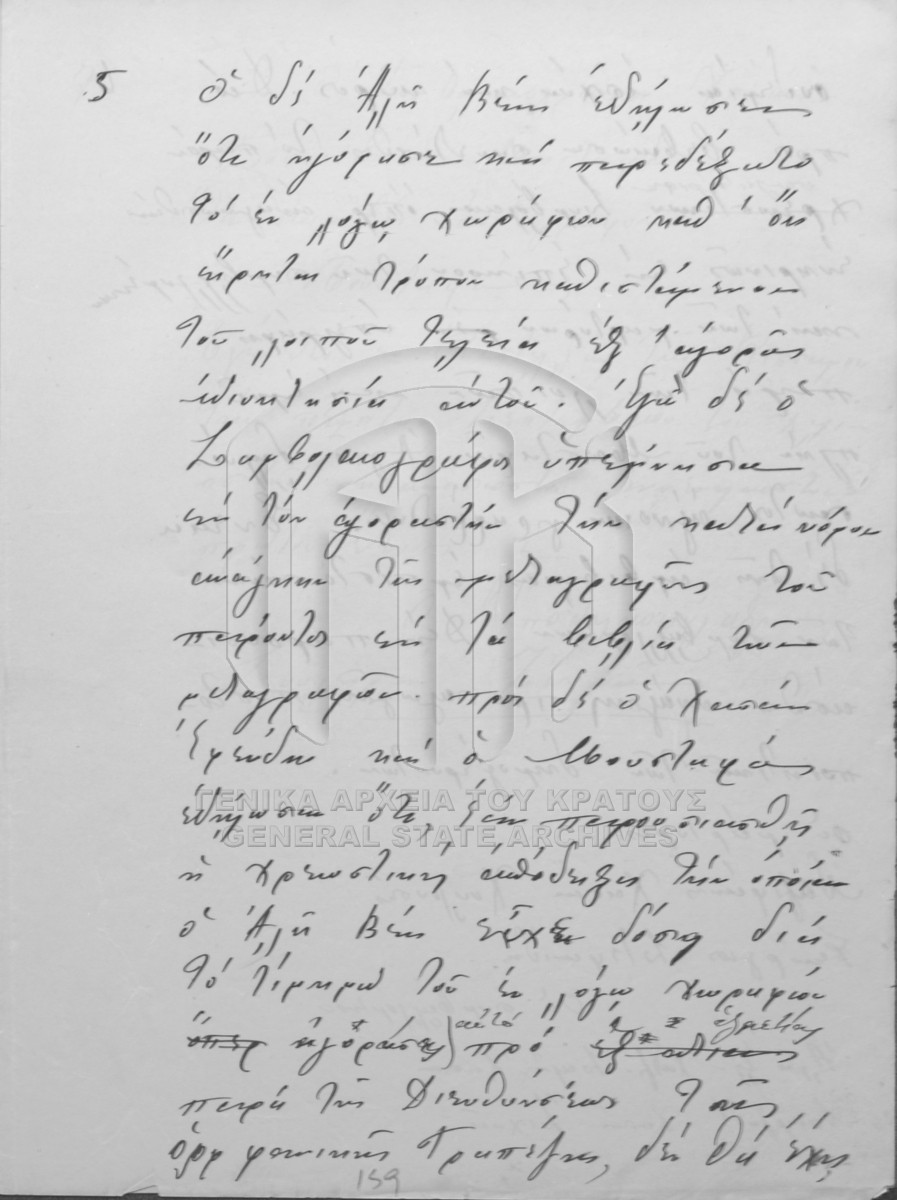 5 Ὁ δέ Ἀλῆ Βέης ἐδήλωσεν
ὅτι ἠγόρασε καί παρεδέξατο
τό ἐν λόγῳ χωράφιον καθ' ὅν
εἴρηται τρόπον καθιστάμενον
τοῦ λοιποῦ τελεία ἐξ ἀγορᾶς
ἰδιοκτησία αὐτοῦ. Ἐγώ δέ ὁ
Συμβολαιογράφος ὑπέμνησα
εἰς τόν ἀγοραστήν τήν κατά νόμον
ἀνάγκην τῆς μεταγραφῆς τοῦ
παρόντος εἰς τά βιβλία τῶν
μεταγραφῶν. πρός δέ ὁ Χασάν
Ἐφένδη καί ὁ Μουσταφᾶς
ἐδήλωσαν ὅτι, ἐάν παρουσιασθῇ
ἡ χρεωστική ἀπόδειξις τήν ὁποίαν
ὁ Ἀλῆ Βέης εἶχεν δόση διά
τό τίμημα τοῦ ἐν λόγῳ χωραφίου
ὅπερ ἠγόρασε αὐτό πρό ἑξαετίας
παρά τῆς Διευθύνσεως τῆς
ὀρφανικῆς Τραπέζης, δέν θά ἔχῃ
159
ΓΕΝΙΚΑ ΑΡΧΕΙΑ ΤΟΥ ΚΡΑΤΟΥΣ
GENERAL STATE ARCHIVES